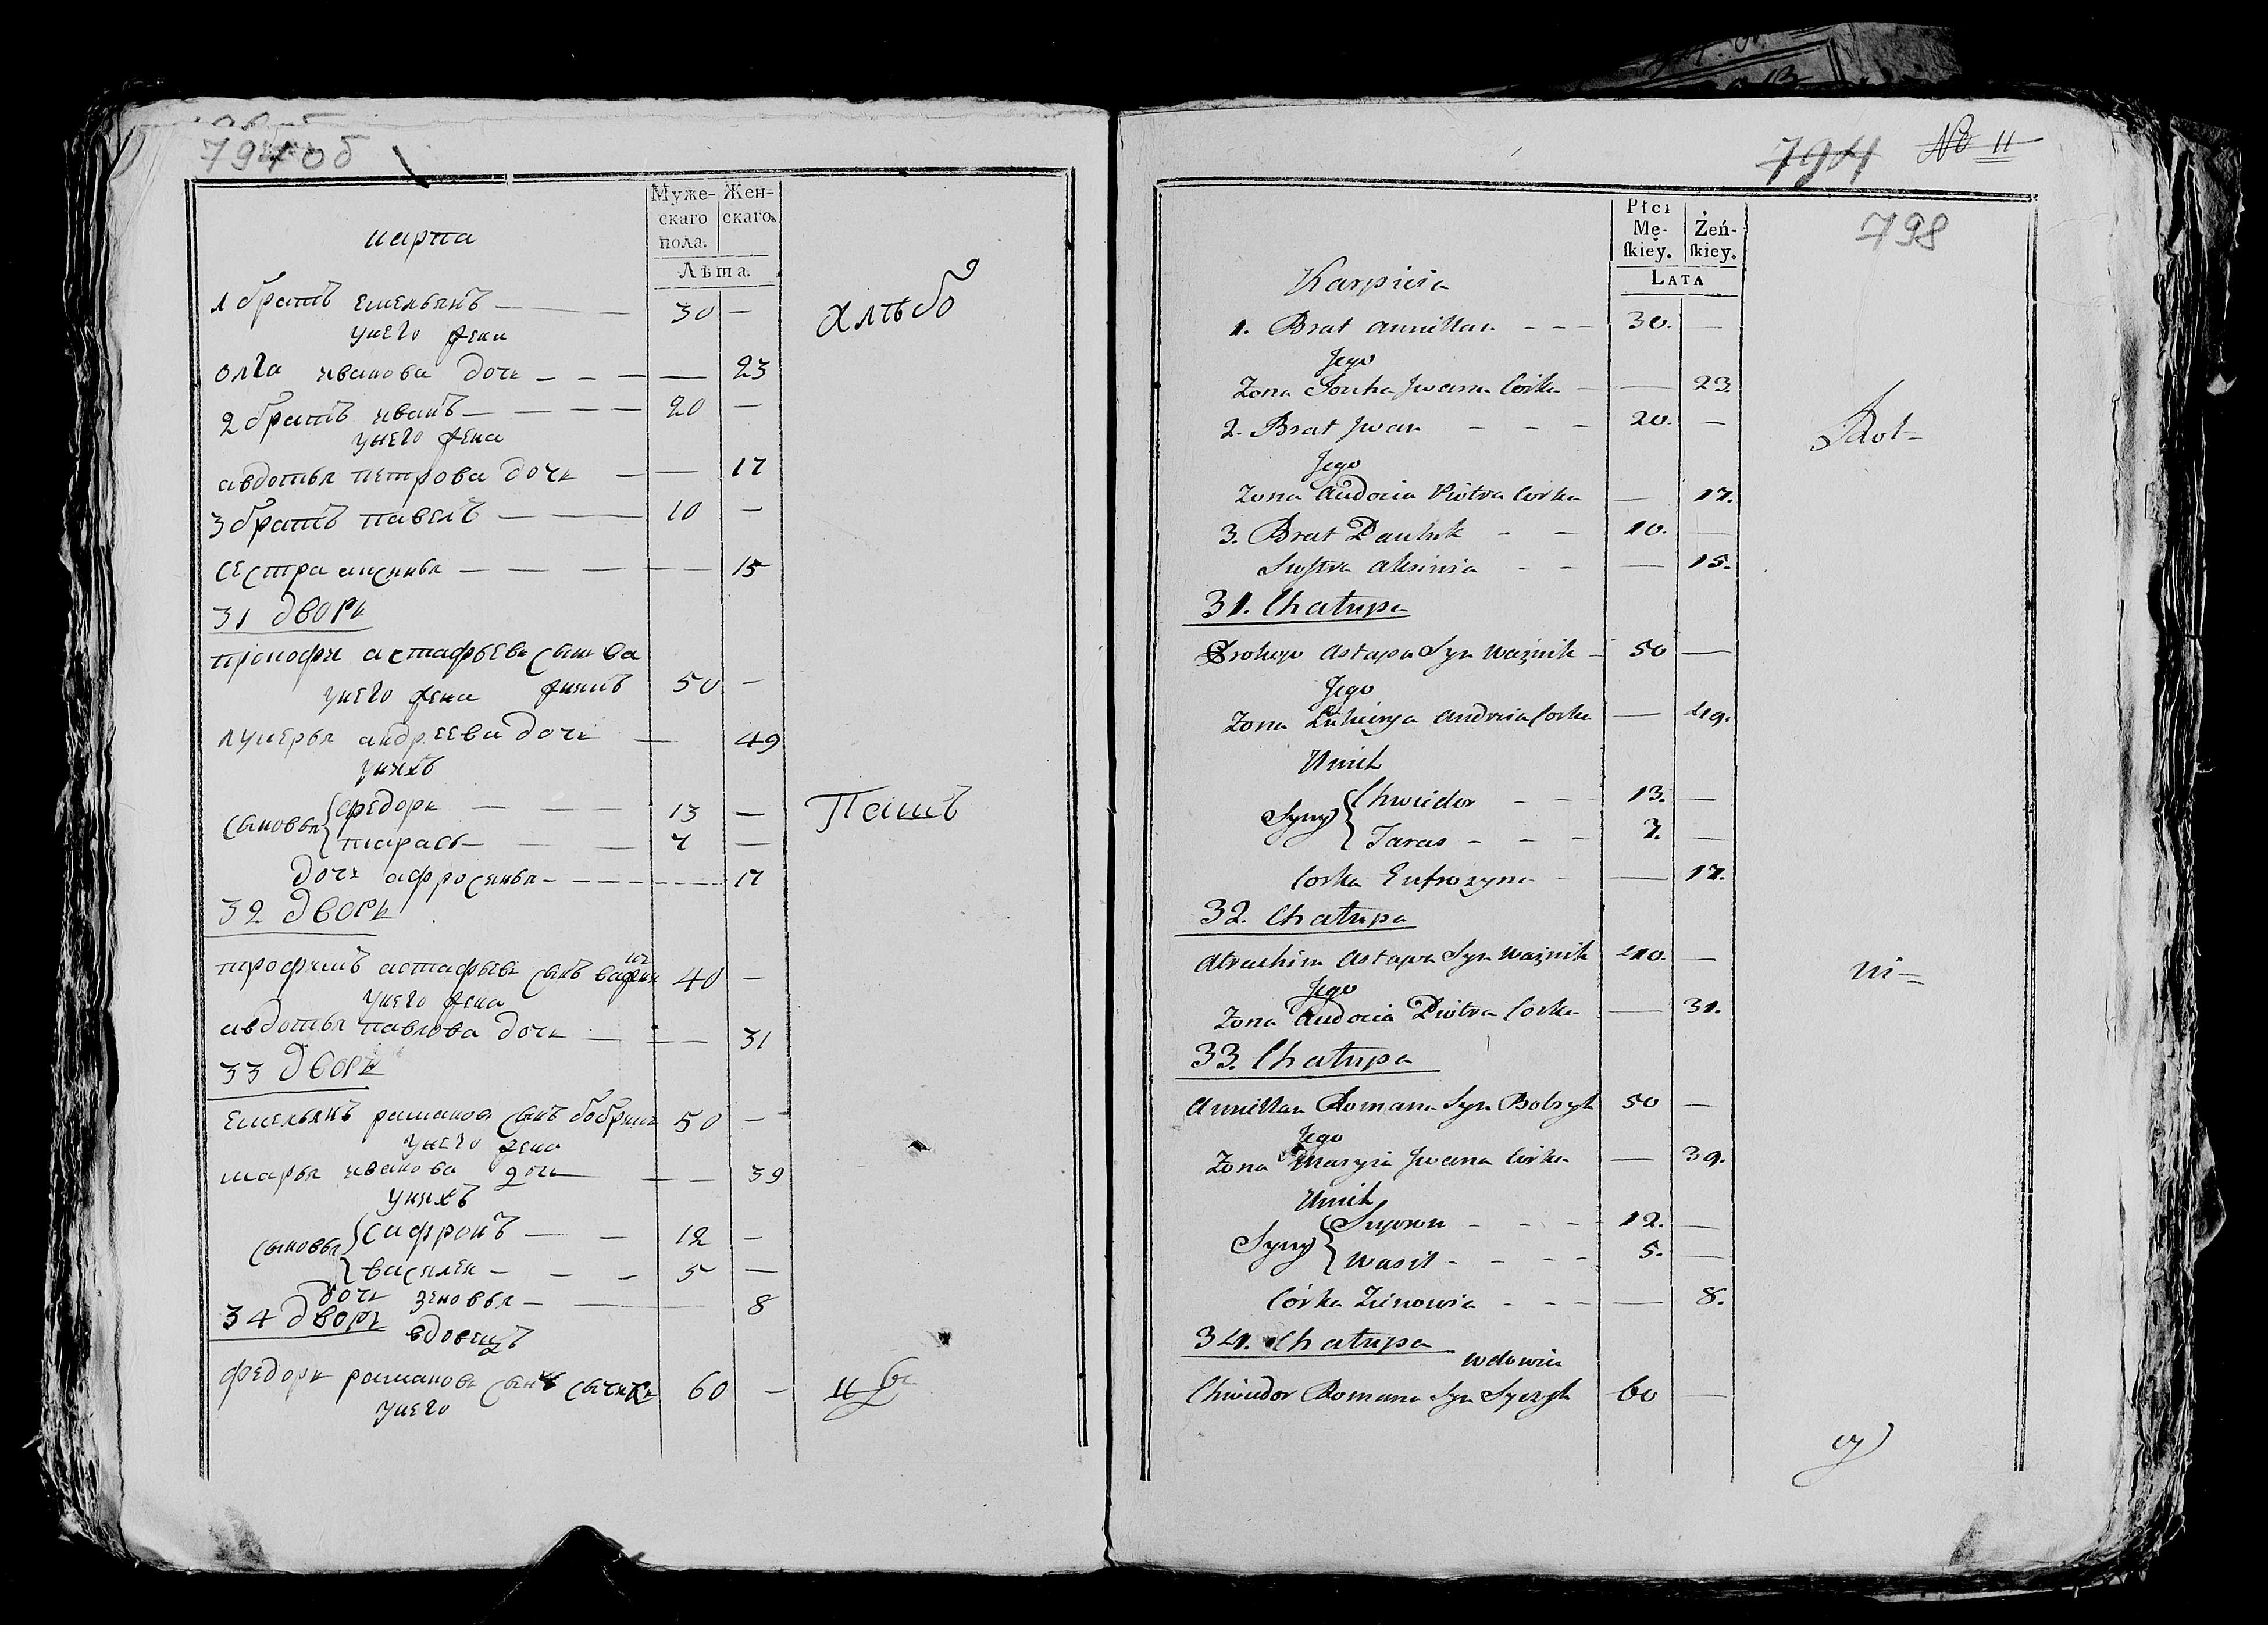 797 об
Муже-
скаго
пола.
Жен-
скаго.
Лѣта.
карпа
1 братъ емельянъ — — 30 —
унего жена
олга иванова дочь — — — — 23
2 братъ иванъ — — — — 20 —
унего жена
авдотья петрова дочь — — 17
3 братъ павелъ — — — 10 —
сестра аксинья — — — — — 15
31 дворъ
прокофи астафьевъ сынъ ва
жникъ 50 —
унего жена
лукерья андреева дочь — 49
унихъ
сыновья { федоръ — — — 13 —
тарасъ — — — 7 —
дочь афросинья — — — — — 17
32 дворъ
трофимъ астафьевъ сынъ важникъ 40 —
унего жена
авдотья павлова дочь — — — 31
33 дворъ
емельянъ раманова сынъ бобрикъ 50 —
унего жена
марья иванова дочь — — 39
унихъ
сыновья { сафронъ — — 12 —
василеи — — — 5 —
дочь зеновья — — — 8
34 дворъ
вдовецъ
федоръ романовъ сынъ сычикъ 60 —
унего
Пашъ
794
№ 11
798
Płci
Mę-
skiey.
Żeń-
skiey.
LATA
Karpieia
1. Brat Amillan - - - 30. —
Jego
Zona Jwana Corka - — 23.
2. Brat Jwan - - - 20. —
Jego
Zona Audocia Piotra Corka — 17.
3. Brat Pauluk - - 10. —
Siostra Aksinia - - — 15.
31. Chałupa
Prokop Astapa Syn Ważnik - 50 —
Jego
Zona Łukierya Andreia Corka — 49.
U nich
Syny { Chwiedor - - - 13. —
Taras - - - 7. —
Corka Eufrozyna - — 17.
32. Chałupa
Atrachim Astapa Syn Ważnik 40. —
Jego
Zona Audocia Piotra Corka — 31.
33. Chałupa
Amillan Romana Syn Bobryk 50 —
Jego
Zona Maryia Jwana Corka — 39.
U nich
Syny { Supron - - - 12. —
Wasil - - - - 5. —
Córka Zienowia - - - — 8.
34. Chałupa
wdowiec
Chwiedor Romana Syn Syczyk 60 —